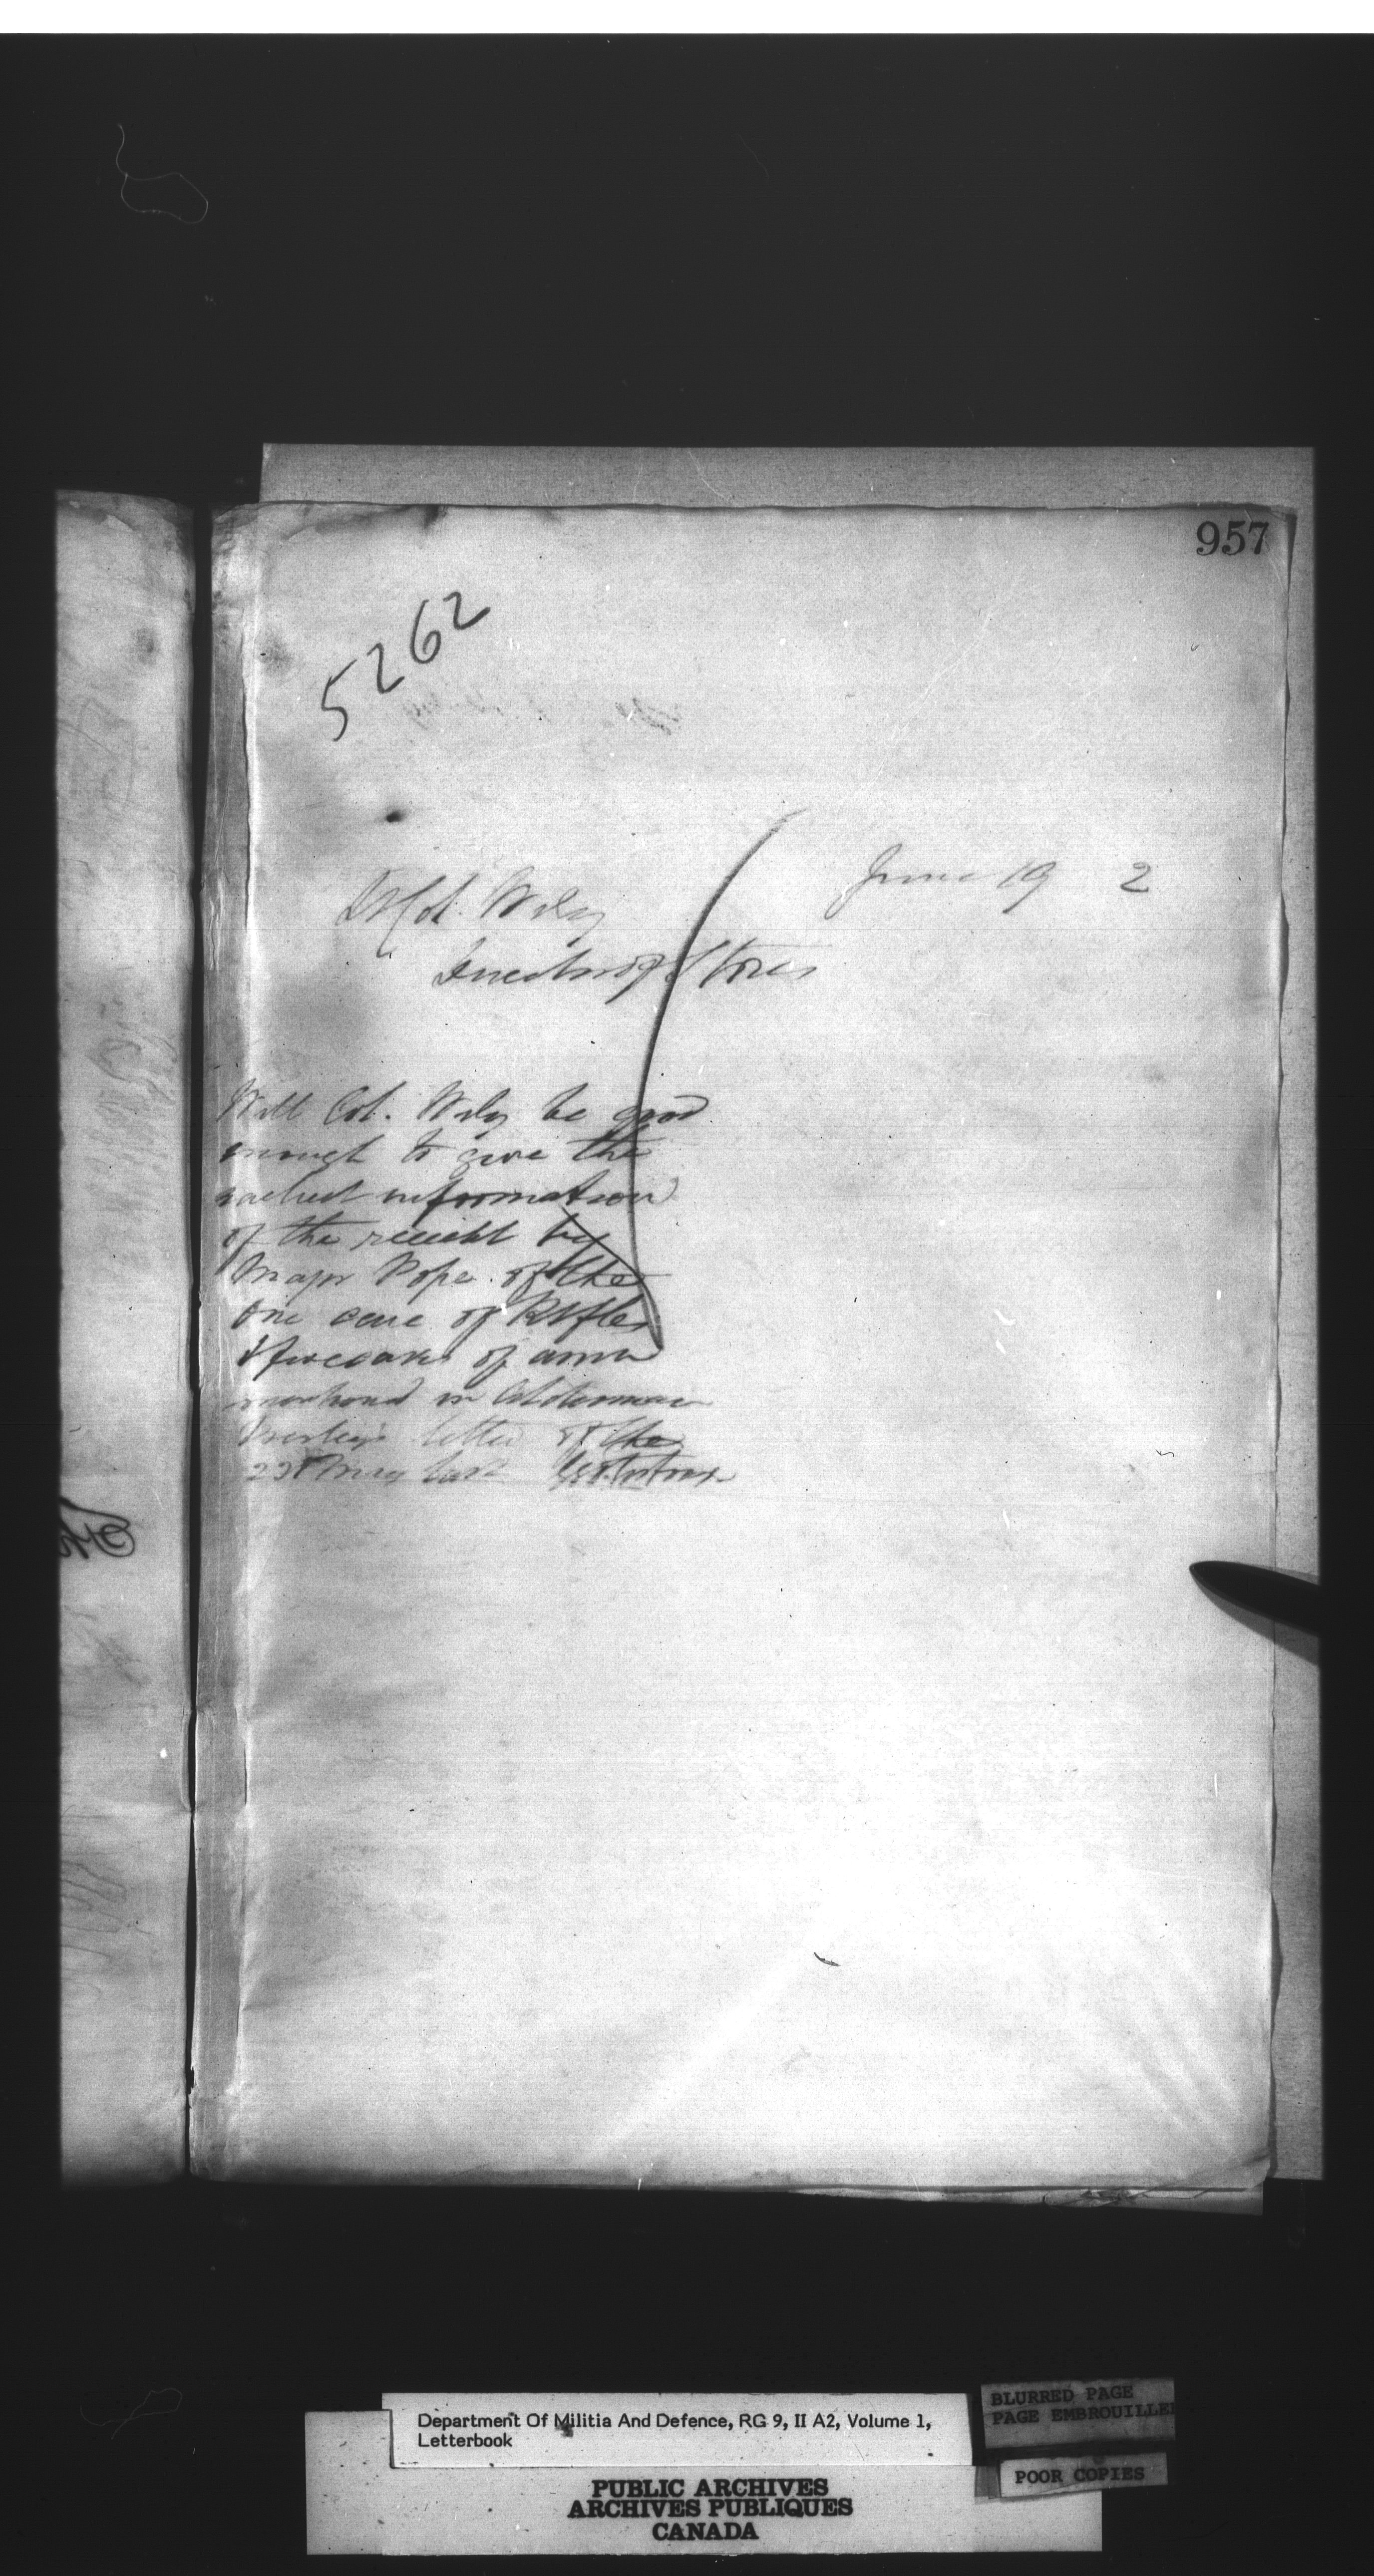 957
5262
June 19 2
Lt Col. Wily
Director of Stores
Will Col. Wily be good
enough to give the
earliest information
of the receipt by
Major Pope of the
one case of Rifles
of
in Alderman
letter of the
May last
Department Of Militia And Defence, RG 9, II A2, Volume 1,
Letterbook
BLURRED PAGE
PAGE EMBROUILLEE
POOR COPIES
PUBLIC ARCHIVES
ARCHIVES PUBLIQUES
CANADA